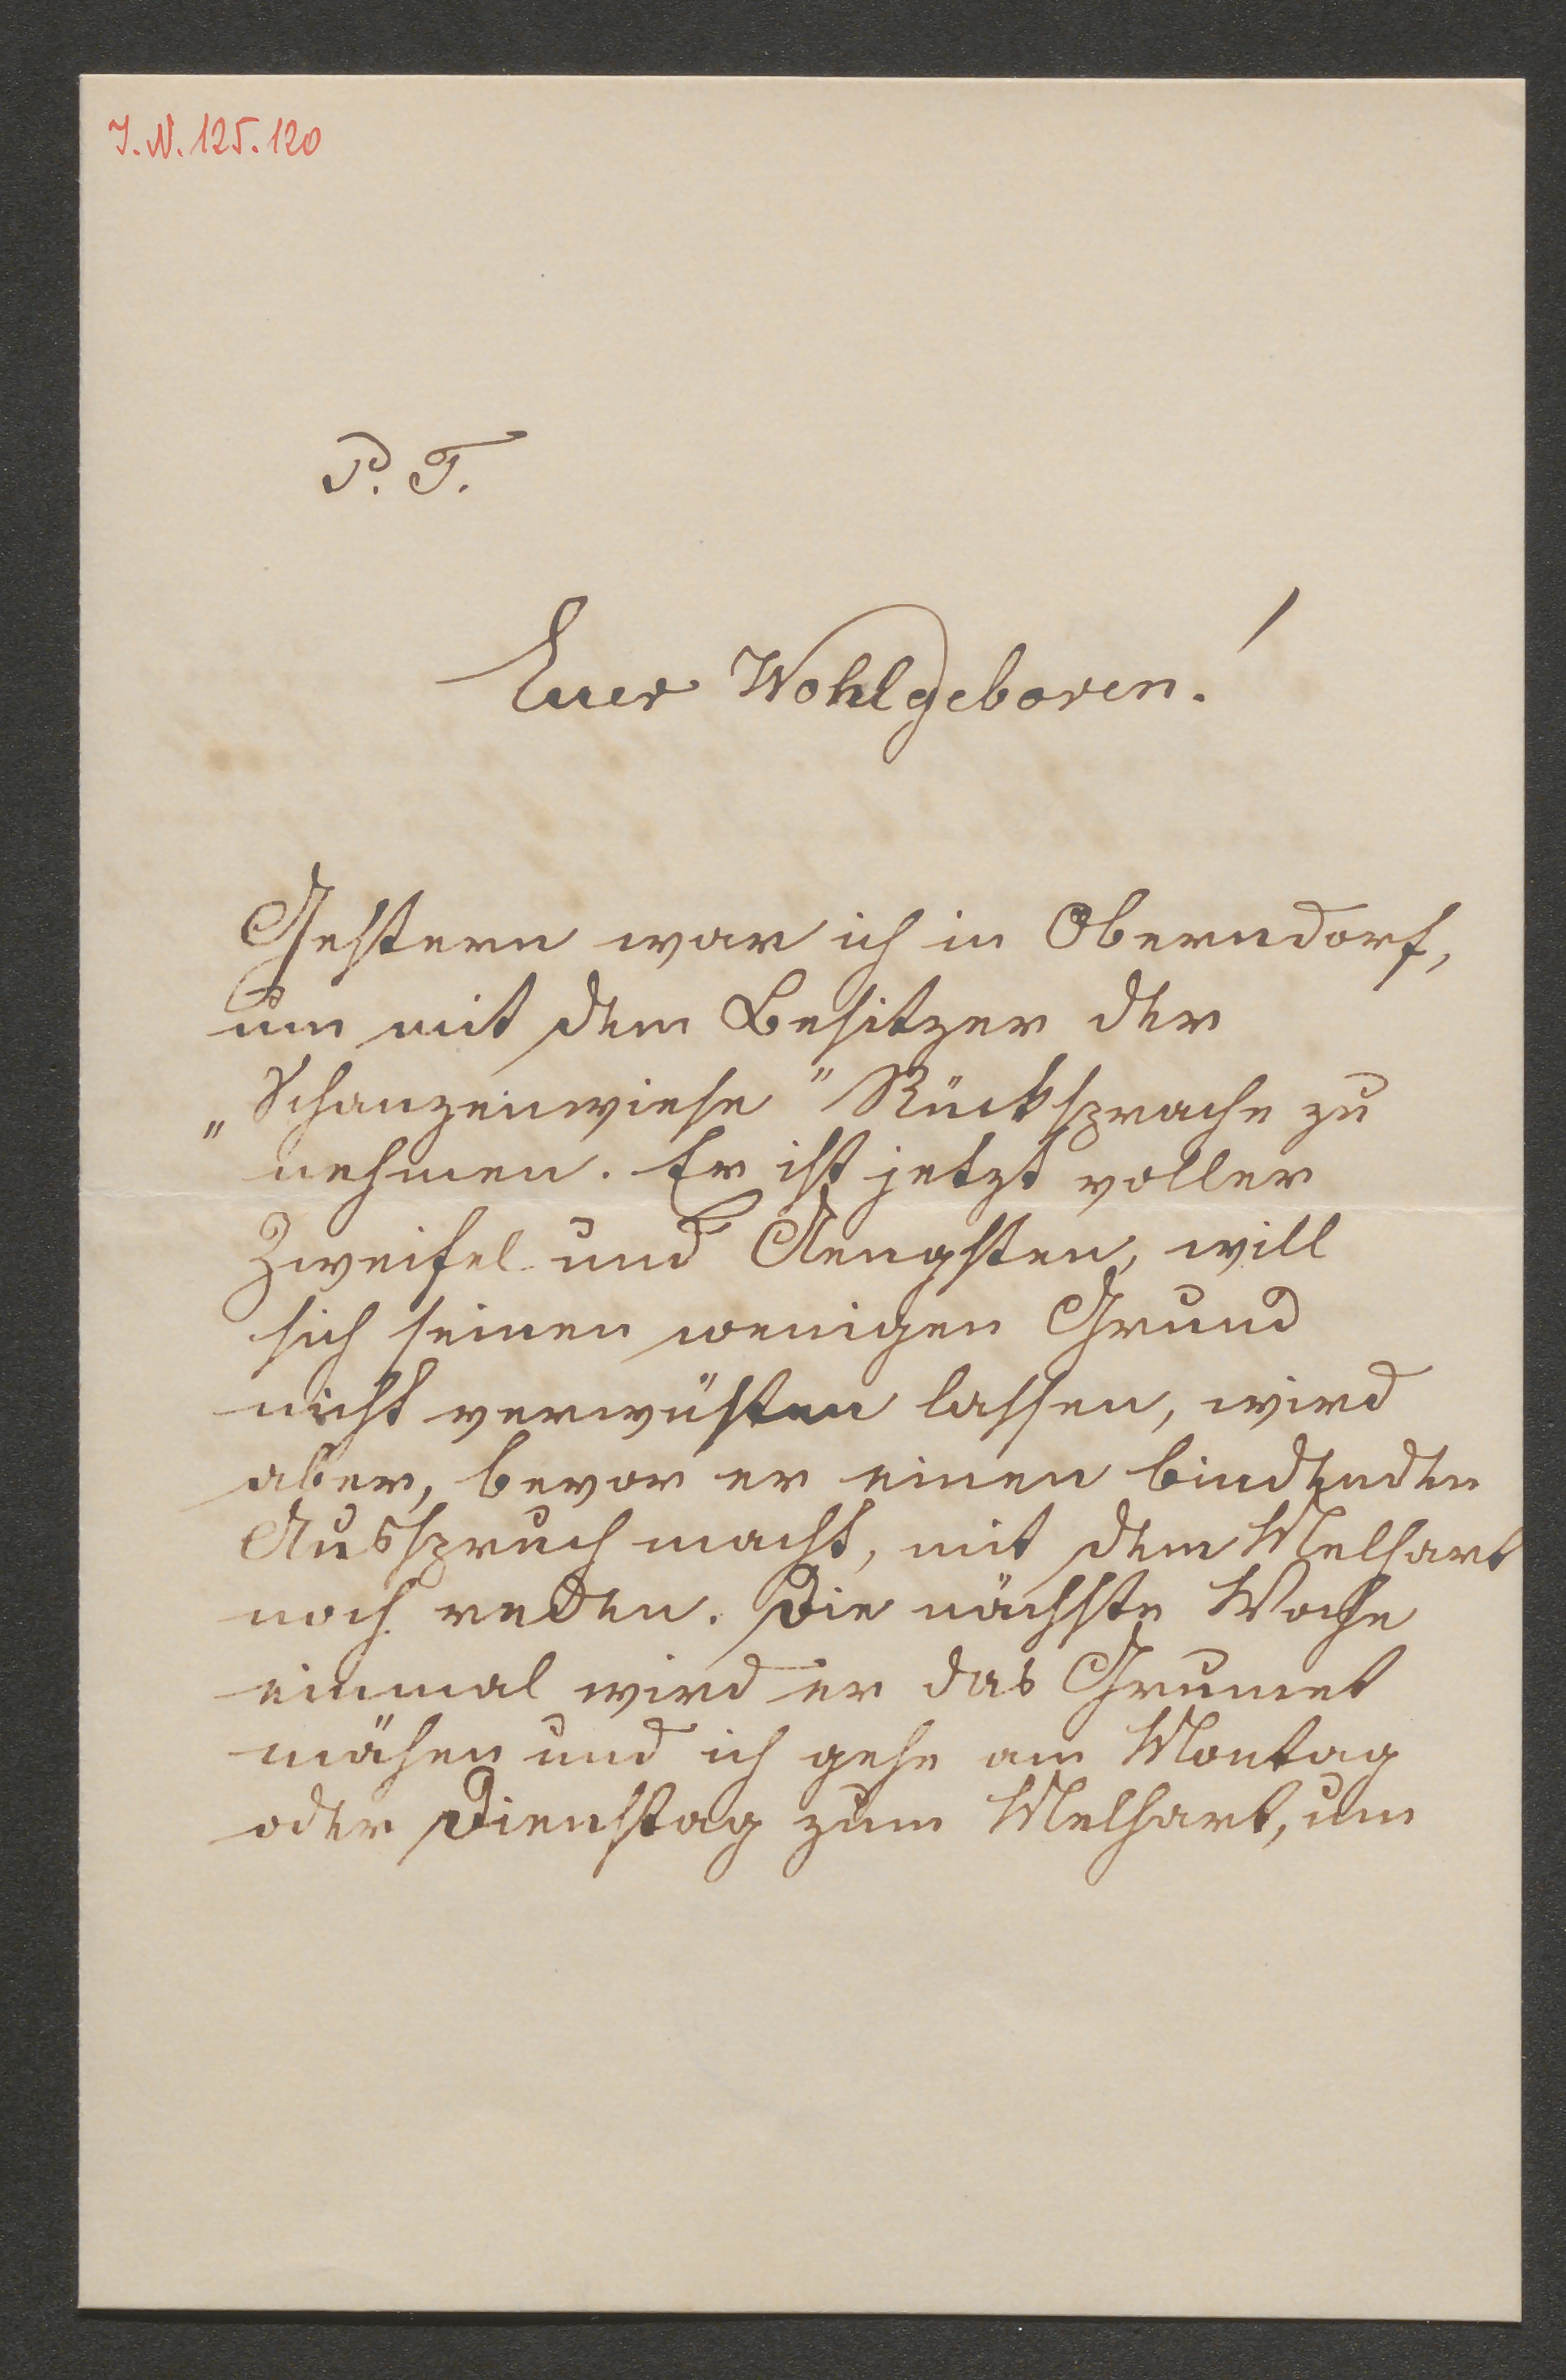 J. N. 125.120
P. T.
Euer Wohlgeboren!
Gestern war ich in Oberndorf,
um mit dem Besitzer der
„Schanzenwiese" Rücksprache zu
nehmen. Er ist jetzt voller
Zweifel und Aengsten, will
sich seinen wenigen Grund
nicht verwüsten lassen, wird
aber, bevor er einen bindenden
Ausspruch macht, mit dem Melhart
noch reden. Die nächste Woche
einmal wird er das Grumet
mähen und ich gehe am Montag
oder Dienstag zum Melhart, um